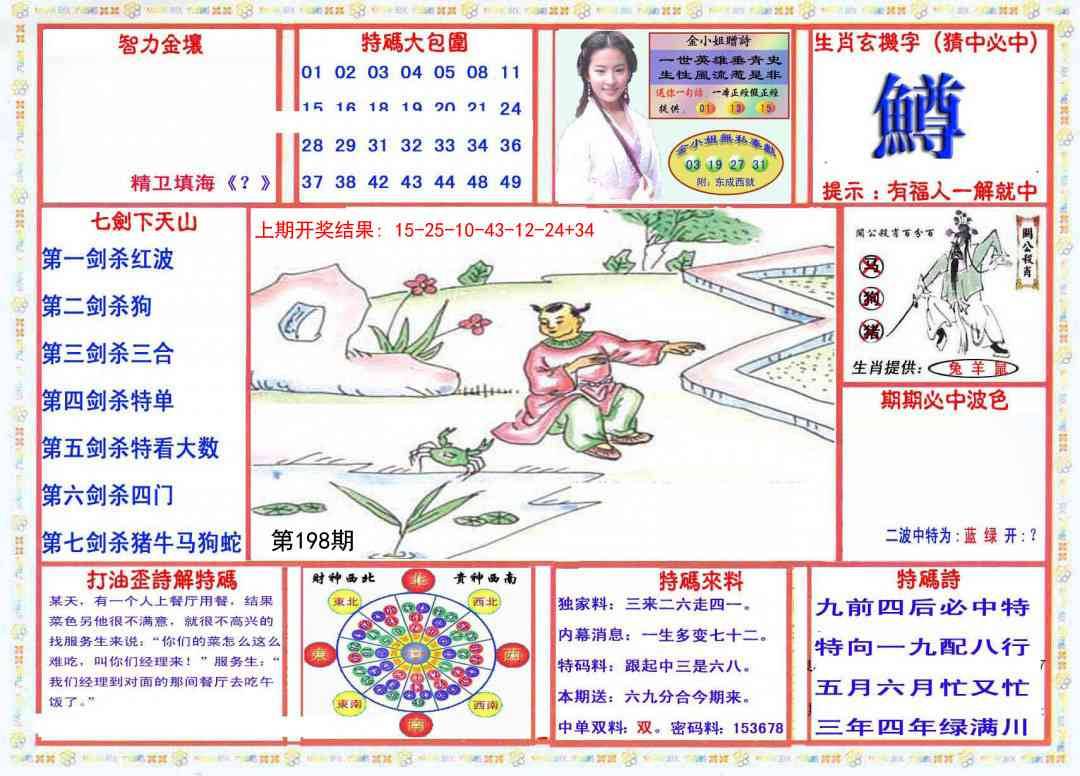 智力金壤
精卫填海《？》
特碼大包圍
01 02 03 04 05 08 11
15 16 18 19 20 21 24
28 29 31 32 33 34 36
37 38 42 43 44 48 49
金小姐贈詩
一世英雄垂青史
生性風流惹是非
送你一句話 一本正經假正經
提供: 01 13 15
金小姐無私奉獻
03 19 27 31
附: 东成西就
生肖玄機字（猜中必中）
鱒
提示：有福人一解就中
七劍下天山
第一剑杀红波
第二剑杀狗
第三剑杀三合
第四剑杀特单
第五剑杀特看大数
第六剑杀四门
第七剑杀猪牛马狗蛇
上期开奖结果: 15-25-10-43-12-24+34
第198期
關公殺肖百分百
關公殺肖
马
狗
猪
生肖提供: 兔 羊 鼠
期期必中波色
二波中特为: 蓝 绿 开: ?
打油歪詩解特碼
某天，有一个人上餐厅用餐，结果
菜色另他很不满意，就很不高兴的
找服务生来说：“你们的菜怎么这么
难吃，叫你们经理来！”服务生：“
我们经理到对面的那间餐厅去吃午
饭了。”
财神西北 贵神西南
北
東北 西北
東 西
東南 西南
南
特碼來料
独家料: 三来二六走四一。
内幕消息: 一生多变七十二。
特码料: 跟起中三是六八。
本期送: 六九分合今期来。
中单双料: 双。密码料: 153678
特碼詩
九前四后必中特
特向一九配八行
五月六月忙又忙
三年四年绿满川